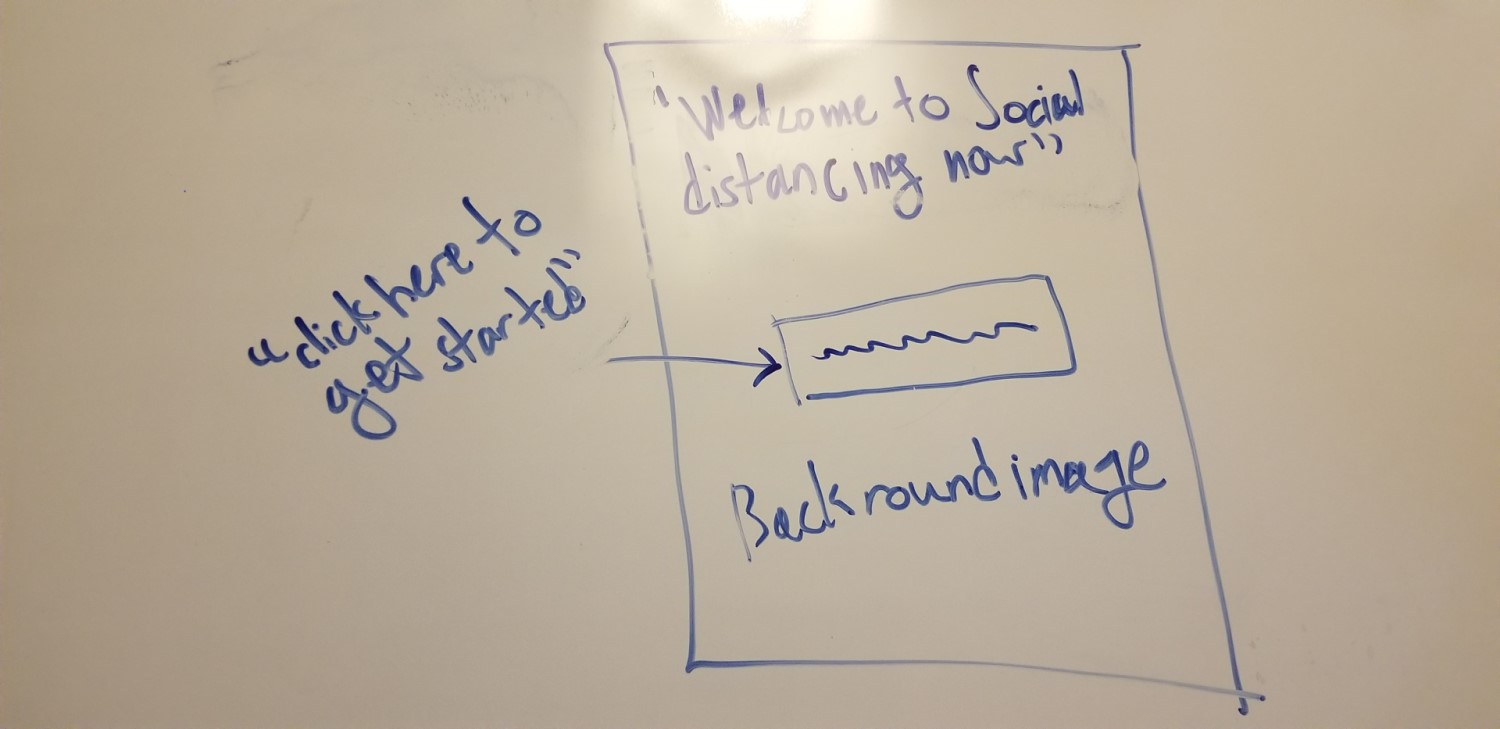 "Welcome to Social
distancing now"
"click here to
get started"
Backround image